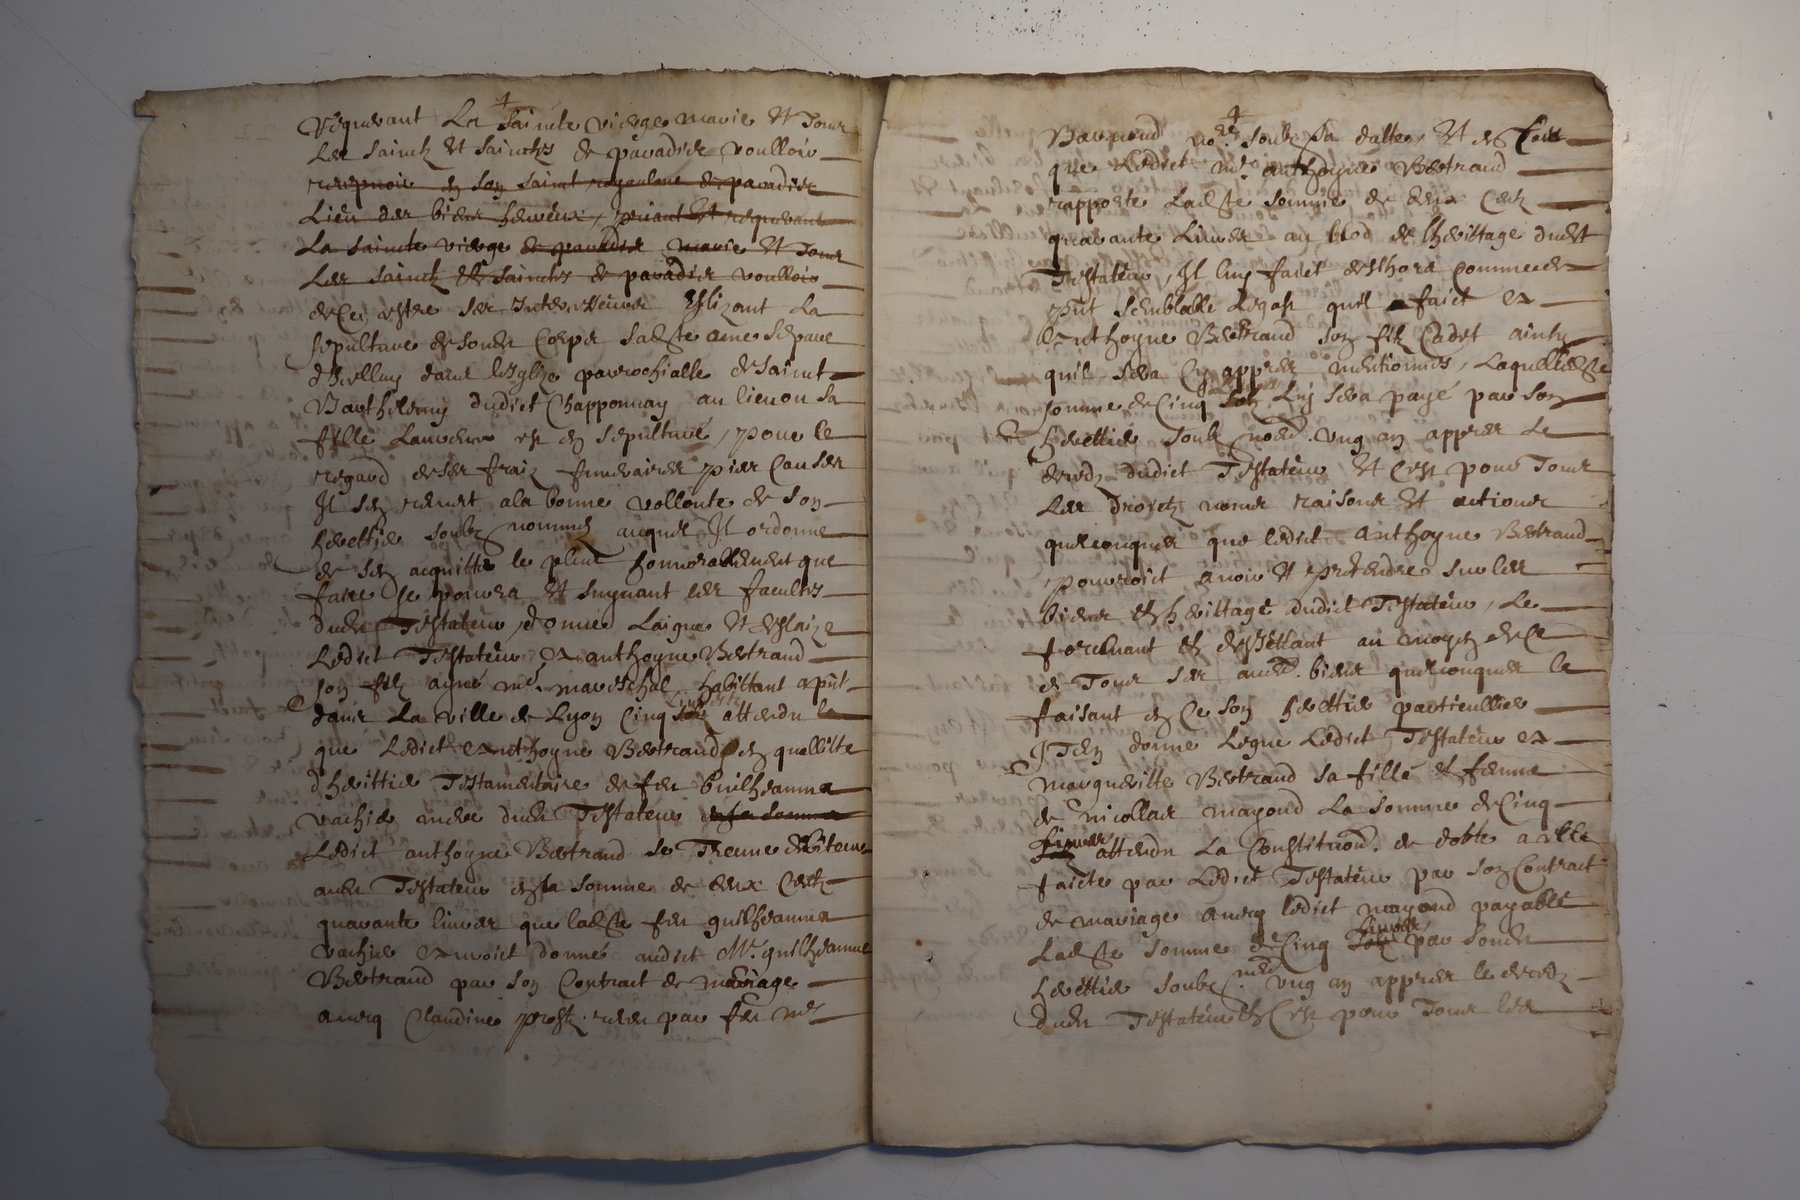 requerant La Saincte vierge marie Et Tous
Les Sainctz Et Sainctes de paradis voulloir
recepvoir en son Sainct royaulme de paradis
Lieu des biens heureux, priant Et requerant
La Saincte vierge de paradis marie Et Tous
Les Sainctz Et Sainctes de paradis voulloir
de ce estre ses Intercesseurs Eslizant La
sepulture de sondt Corps Sadte ame separe
d'Icelluy dans lesglize parrochialle de Sainct
Barthelemy dudict Chapponnay au lieu ou Sa
fille Laurence est en sepulture, pour le
regard de ses fraiz funeraires pies Causes
Il sen remet a la bonne vollonte de son
heretier soubz nommé auquel Il ordonne
de sen acquitter le plus honnorablement que
faire se pourra Et suyvant ses facultes
dudt Testateur, donne Laigue Et Delaize
Ledict Testateur a anthoyne Bertrand
son filz aysné me mareschal habittant a pnt
dans La ville de Lyon Cinq livres attendu
que Ledict Anthoyne Bertrand en quallitte
d'herittier Testamentaire de feu Guilheauma
vachier mere dudt Testateur de la somme
Ledict anthoyne Bertrand se Treuve debiteur
audt Testateur en la somme de deux Centz
quarante livres que ladte feu guilheauma
vachier Avoict donné audict Mr. guilheaume
Bertrand par son Contract de mariage
avecq Claudine receu par feu me
Bertrand no.re soubz sa datte, Et des Cas
que Ledict me anthoyne Bertrand
rapporte Ladte somme de deux Centz
quarante Livres au blod de lherittage dudt
Testateur, Il luy faict deslhors Comme des
pnt semblable Legat quil faict a
Anthoyne Bertrand son filz Cadet ainsy
quil sera Cy appres mentionné, Laquelle dte
somme de Cinq livres Luy sera payé par son
herettier soubz nomé. ung an appres Le
decedz dudict Testateur Et Cest pour Tous
Les droictz noms raisons Et actions
quelconques que ledict Anthoyne Bertrand
pourroict avoir Et prethendre sur les
biens Et herittage dudict Testateur, Le
forcluant Et desjettant au moyen de Ce
de Tous ses aultres biens quelconques le
faisant en Ce son herettier particullier
Item donne Legue Ledict Testateur a
margueritte Bertrand sa fille Et femme
de nicollas mayoud La somme de Cinq
livres attendu La Constitution de dobte a elle
faicte par Ledict Testateur par son Contract
de mariage avecq ledict mayoud payable
Ladte somme de Cinq livres par sondt
herettier soubz né. ung an appres le decedz
dudt Testateur Et Cest pour Tous les